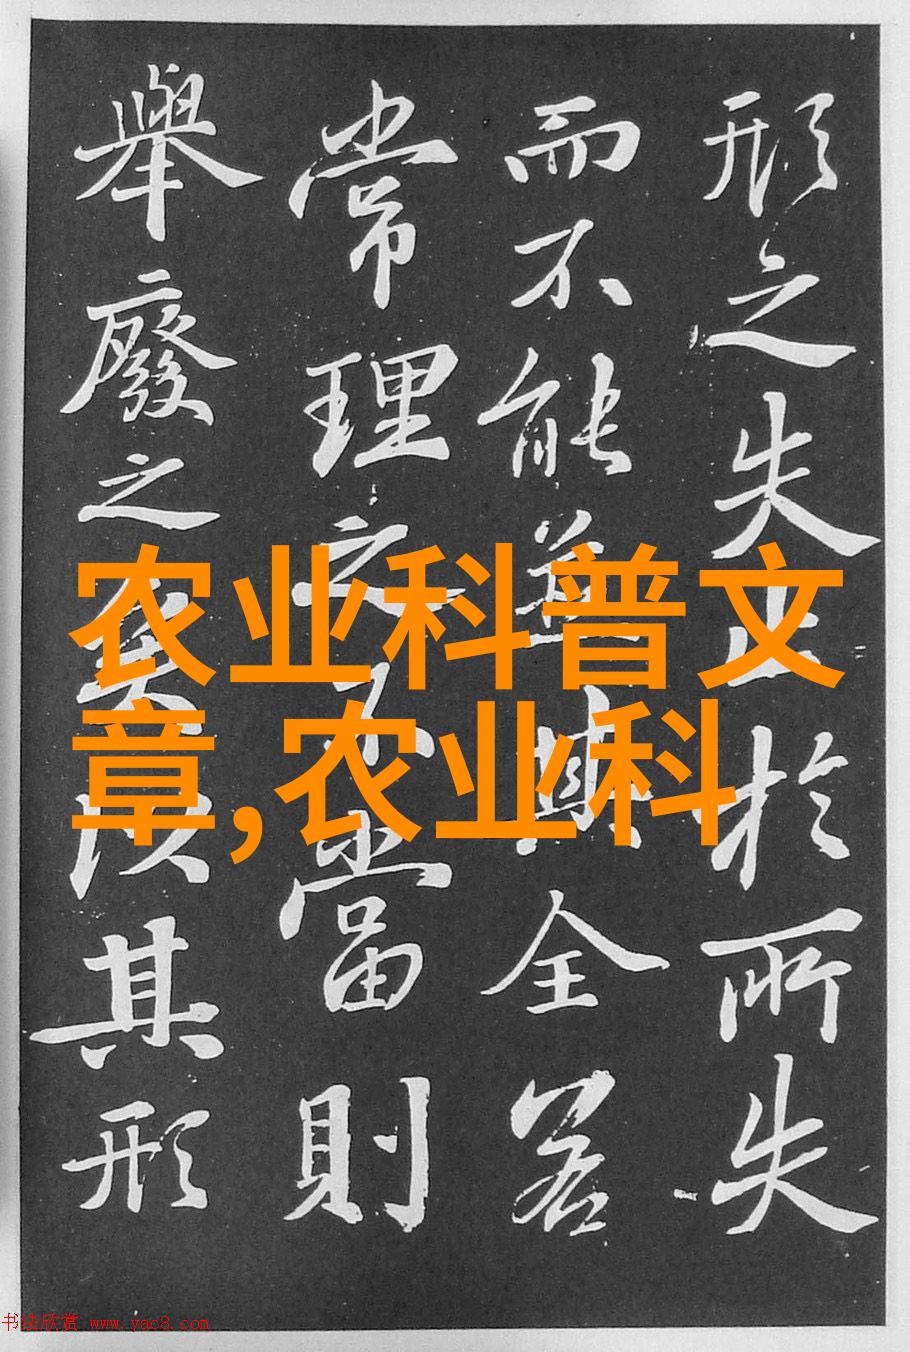 形之失止於所失
而不能其全若
常理之不當則
舉廢之矣以其形
农业科普文
章,农业科
书法欣赏 www.yac8.com